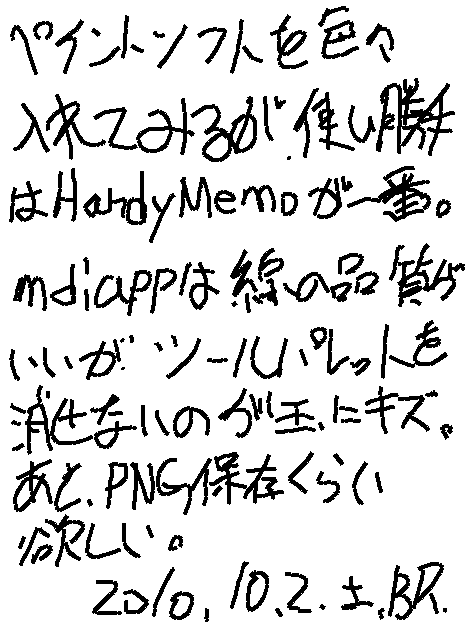 ペイントソフトを色々
入れてみるが、使い勝手
はHandyMemoが一番。
mdiappは線の品質が
いいがツールパレットを
消せないのが玉にキズ。
あと、PNG保存くらい
欲しい。
2010.10.2.土.BR.